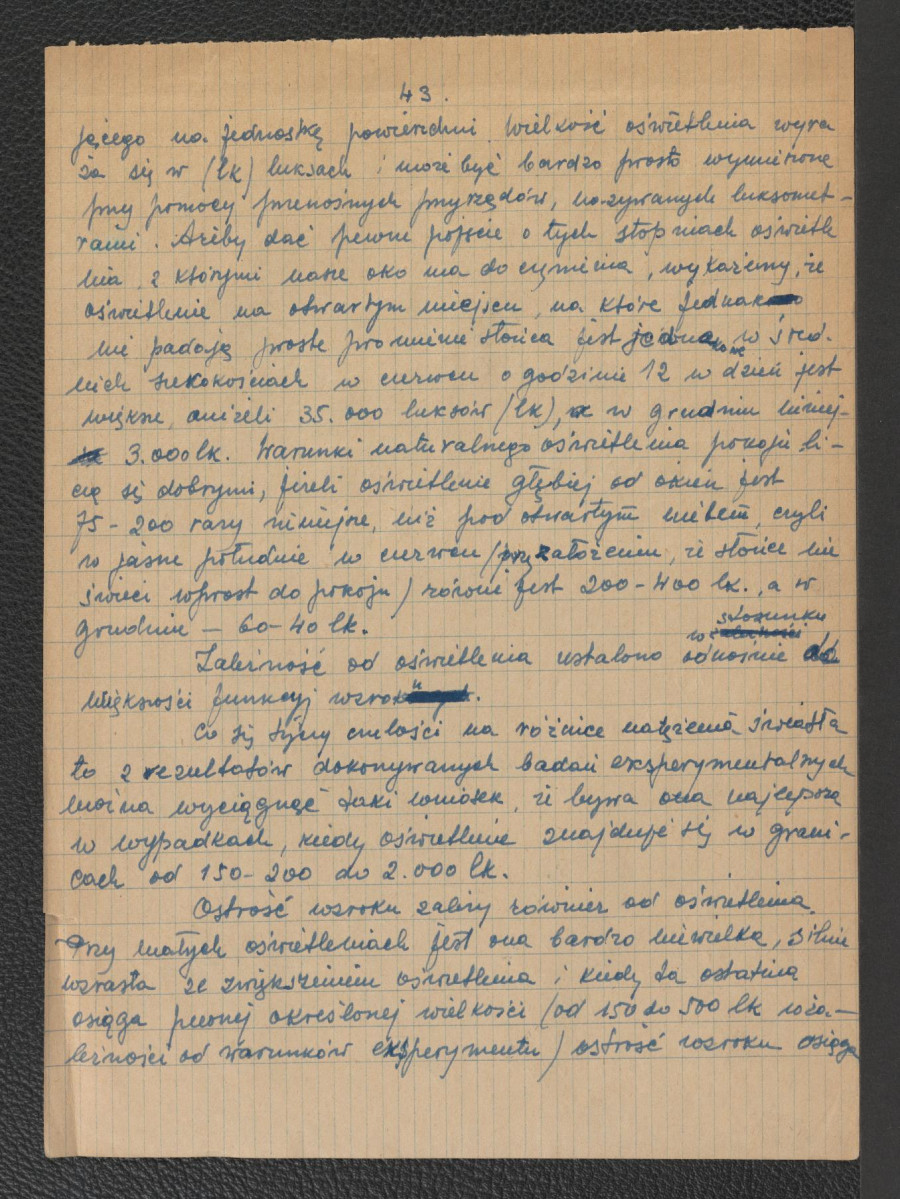 43.
jącego na jednostkę powierzchni. Wielkość oświetlenia wyra
ża się w (lk) luksach i może być bardzo prosto wymierzone
przy pomocy przenośnych przyrządów, nazywanych luksomet-
rami. Ażeby dać pewne pojęcie o tych stopniach oświetle
nia, z którymi nasze oko ma do czynienia, wykażemy, że
oświetlenie na otwartym miejscu, na które jednako
nie padają proste promienie słońca jest jednakowe w śred.
nich szerokościach w czerwcu o godzinie 12 w dzień jest
większe, aniżeli 35.000 luksów (lk), a w grudniu mniej-
3.000 lk. Warunki naturalnego oświetlenia pokoju li-
czą się dobrymi, jeżeli oświetlenie głębiej od okien jest
75-200 razy mniejsze, niż pod otwartym niebem, czyli
w jasne południe w czerwcu (przy założeniu, że słońce nie
świeci wprost do pokoju) równe jest 200-400 lk., a w
grudniu - 60-40 lk.
w stosunku
Zależność od oświetlenia ustalono odnośnie do
większości funkcyj wzroku.
Co się tyczy czułości na różnice natężenia światła
to z rezultatów dokonywanych badań eksperymentalnych
można wyciągnąć taki wniosek, że bywa ona najlepsza
w wypadkach, kiedy oświetlenie znajduje się w grani-
cach od 150-200 do 2.000 lk.
Ostrość wzroku zależy również od oświetlenia.
Przy małych oświetleniach jest ona bardzo niewielka, silnie
wzrasta ze zwiększeniem oświetlenia i kiedy ta ostatnia
osiąga pewnej określonej wielkości (od 150 do 500 lk w zależ-
leżności od warunków eksperymentu) ostrość wzroku osiąga